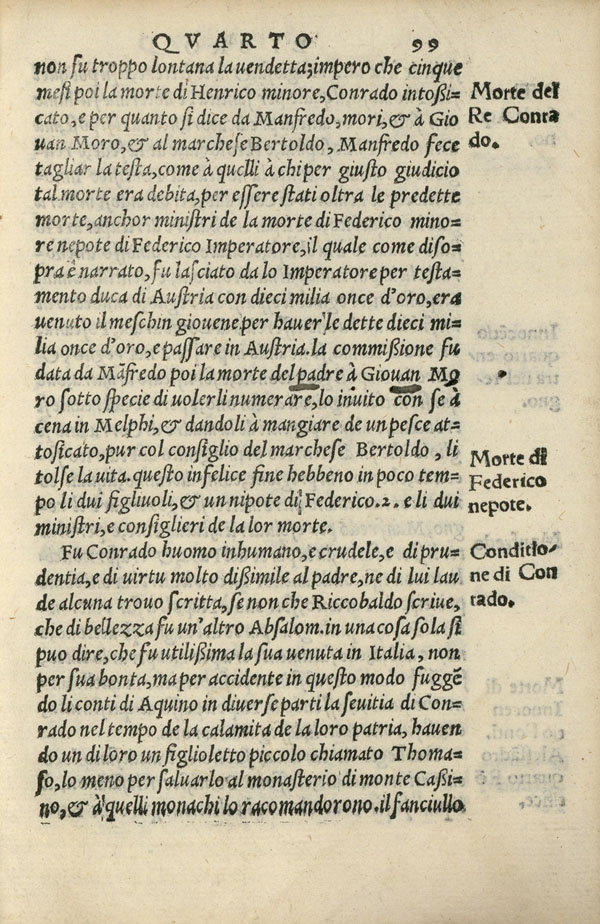 QVARTO 99
non fu troppo lontana la uendetta; impero che cinque
mesi poi la morte di Henrico minore, Conrado intoßi=
cato, e per quanto si dice da Manfredo, mori, & à Gio
uan Moro, & al marchese Bertoldo, Manfredo fece
tagliar la testa, come à quelli à chi per giusto giudicio
tal morte era debita, per essere stati oltra le predette
morte, anchor ministri de la morte di Federico mino=
re nepote di Federico Imperatore, il quale come diso=
pra è narrato, fu lasciato da lo Imperatore per testa=
mento duca di Austria con dieci milia once d'oro, era
uenuto il meschin giouene per hauer'le dette dieci mi=
lia once d'oro, e passare in Austria. la commißione fu
data da Mãfredo poi la morte del padre à Giouan Mo
ro sotto specie di uolerli numerare, lo inuito con se à
cena in Melphi, & dandoli à mangiare de un pesce at=
tosicato, pur col consiglio del marchese Bertoldo, li
tolse la uita. questo infelice fine hebbeno in poco tem=
po li dui figliuoli, & un nipote di Federico .2. e li dui
ministri, e consiglieri de la lor morte.
Fu Conrado huomo inhumano, e crudele, e di pru=
dentia, e di uirtu molto dißimile al padre, ne di lui lau
de alcuna trouo scritta, se non che Riccobaldo scriue,
che di bellezza fu un'altro Absalom. in una cosa sola si
puo dire, che fu utilißima la sua uenuta in Italia, non
per sua bonta, ma per accidente in questo modo fuggẽ
do li conti di Aquino in diuerse parti la seuitia di Con=
rado nel tempo de la calamita de la loro patria, hauen
do un di loro un figlioletto piccolo chiamato Thoma=
so, lo meno per saluarlo al monasterio di monte Caßi=
no, & à quelli monachi lo racomandorono. il fanciullo
Morte del
Re Conra
do.
Morte di
Federico
nepote.
Conditio=
ne di Con
rado.